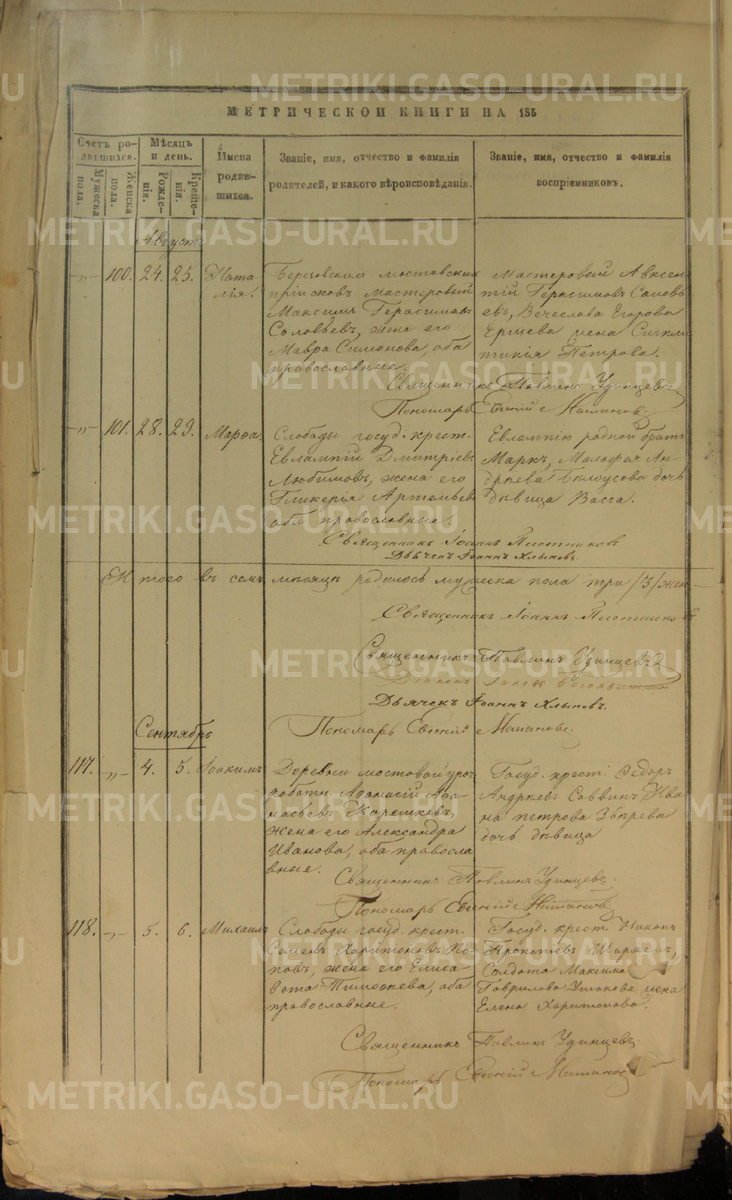 МЕТРИЧЕСКОЙ КНИГИ НА 185
Счетъ родившихся.
Мужеска пола.
Женска пола.
Мѣсяцъ и день.
Рожденія.
Крещенія.
Имена родившихся.
Званіе, имя, отчество и фамилія родителей, и какого вѣроисповѣданія.
Званіе, имя, отчество и фамилія воспріемниковъ.
Августъ
-„- 100. 24. 25. Наталія.
Березовскихъ мостовскихъ
пріисковъ мастеровый
Максимъ Герасимовъ
Соловьевъ, жена его
Мавра Симонова, оба
православные.
Мастеровый Авксен
тій Герасимовъ Соловь
евъ, Вечеслава Егорова
жена
Петрова.
Священникъ Павлинъ Удинцевъ
Пономарь Евгеній
-„- 101. 28. 29. Марѳа.
Слободы госуд. крест.
Евлампій Дмитріевъ
Любимовъ, жена его
Гликерія Артемьева
оба православные
Евлампію родной братъ
Маркъ, Ан
дреева Бѣлоусова дочь
дѣвица Васса.
Священникъ Іоаннъ Плотниковъ
Дьячекъ Іоаннъ Хлыновъ.
Итого въ семъ мѣсяцѣ родилось мужеска пола три /3/ жен
Священникъ Іоаннъ Плотниковъ
Священникъ Павлинъ Удинцевъ
Дьячекъ Іоаннъ Хлыновъ.
Пономарь Евгеній
Сентябрь
117. -„- 4. 5. Іоакимъ
Деревни мостовой уроч.
работн. Аѳанасій Аѳа
насьевъ
жена его Александра
Иванова, оба правосла
вные.
Госуд. крест. Ѳедоръ
Андреевъ Саввинъ, Ива
на Петрова Звѣрева
дочь дѣвица
Священникъ Павлинъ Удинцевъ.
Пономарь Евгеній
118. -„- 5. 6. Михаилъ
Слободы госуд. крест.
Семенъ Харитоновъ По
повъ, жена его Елиса
вета Тимоѳеева, оба
православные.
Госуд. крест. Никонъ
Прокопьевъ
Солдата Максима
Гаврилова жена
Елена Харитонова.
Священникъ Павлинъ Удинцевъ.
Пономарь Евгеній
METRIKI.GASO-URAL.RU